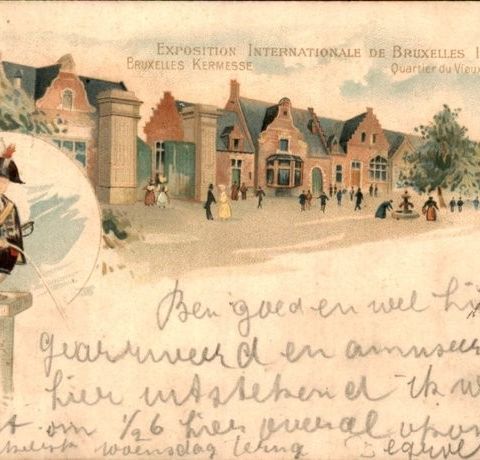 EXPOSITION INTERNATIONALE DE BRUXELLES 1
BRUXELLES KERMESSE
Quartier du Vieux
Ben goed en wel hi
Gearriveerd en amuseer
hier uitstekend ik w
t om 1/26 hier overal
woensdag terug